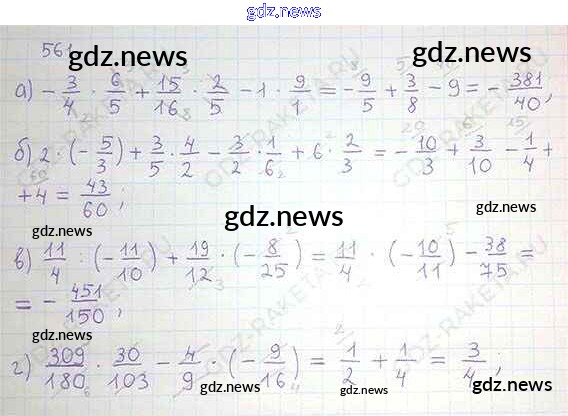 gdz.news
561
gdz.news
gdz.news
а) - 3/4 · 6/5 + 15/16 · 2/5 - 1 · 9/1 = - 9/5 + 3/8 - 9 = - 381/40;
gdz.news
б) 2 · (- 5/3) + 3/5 · 4/2 - 3/2 · 1/6 + 6 · 2/3 = - 10/3 + 3/10 - 1/4 +
+ 4 = 43/60;
gdz.news
gdz.news
gdz.news
в) 11/4 : (- 11/10) + 19/12 · (- 8/25) = 11/4 · (- 10/11) - 38/75 =
gdz.news
= - 451/150;
gdz.news
г) 309/180 · 30/103 - 4/9 · (- 9/16) = 1/2 + 1/4 = 3/4;
gdz.news
gdz.news
gdz.news
GDZ-RAKETA.RU